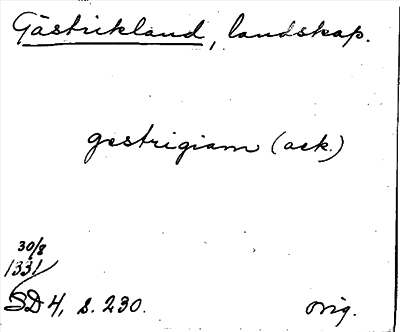 Gästrikland, landskap.
gestrigiam (ack.)
30/8
1331
SD 4, s. 230.
orig.